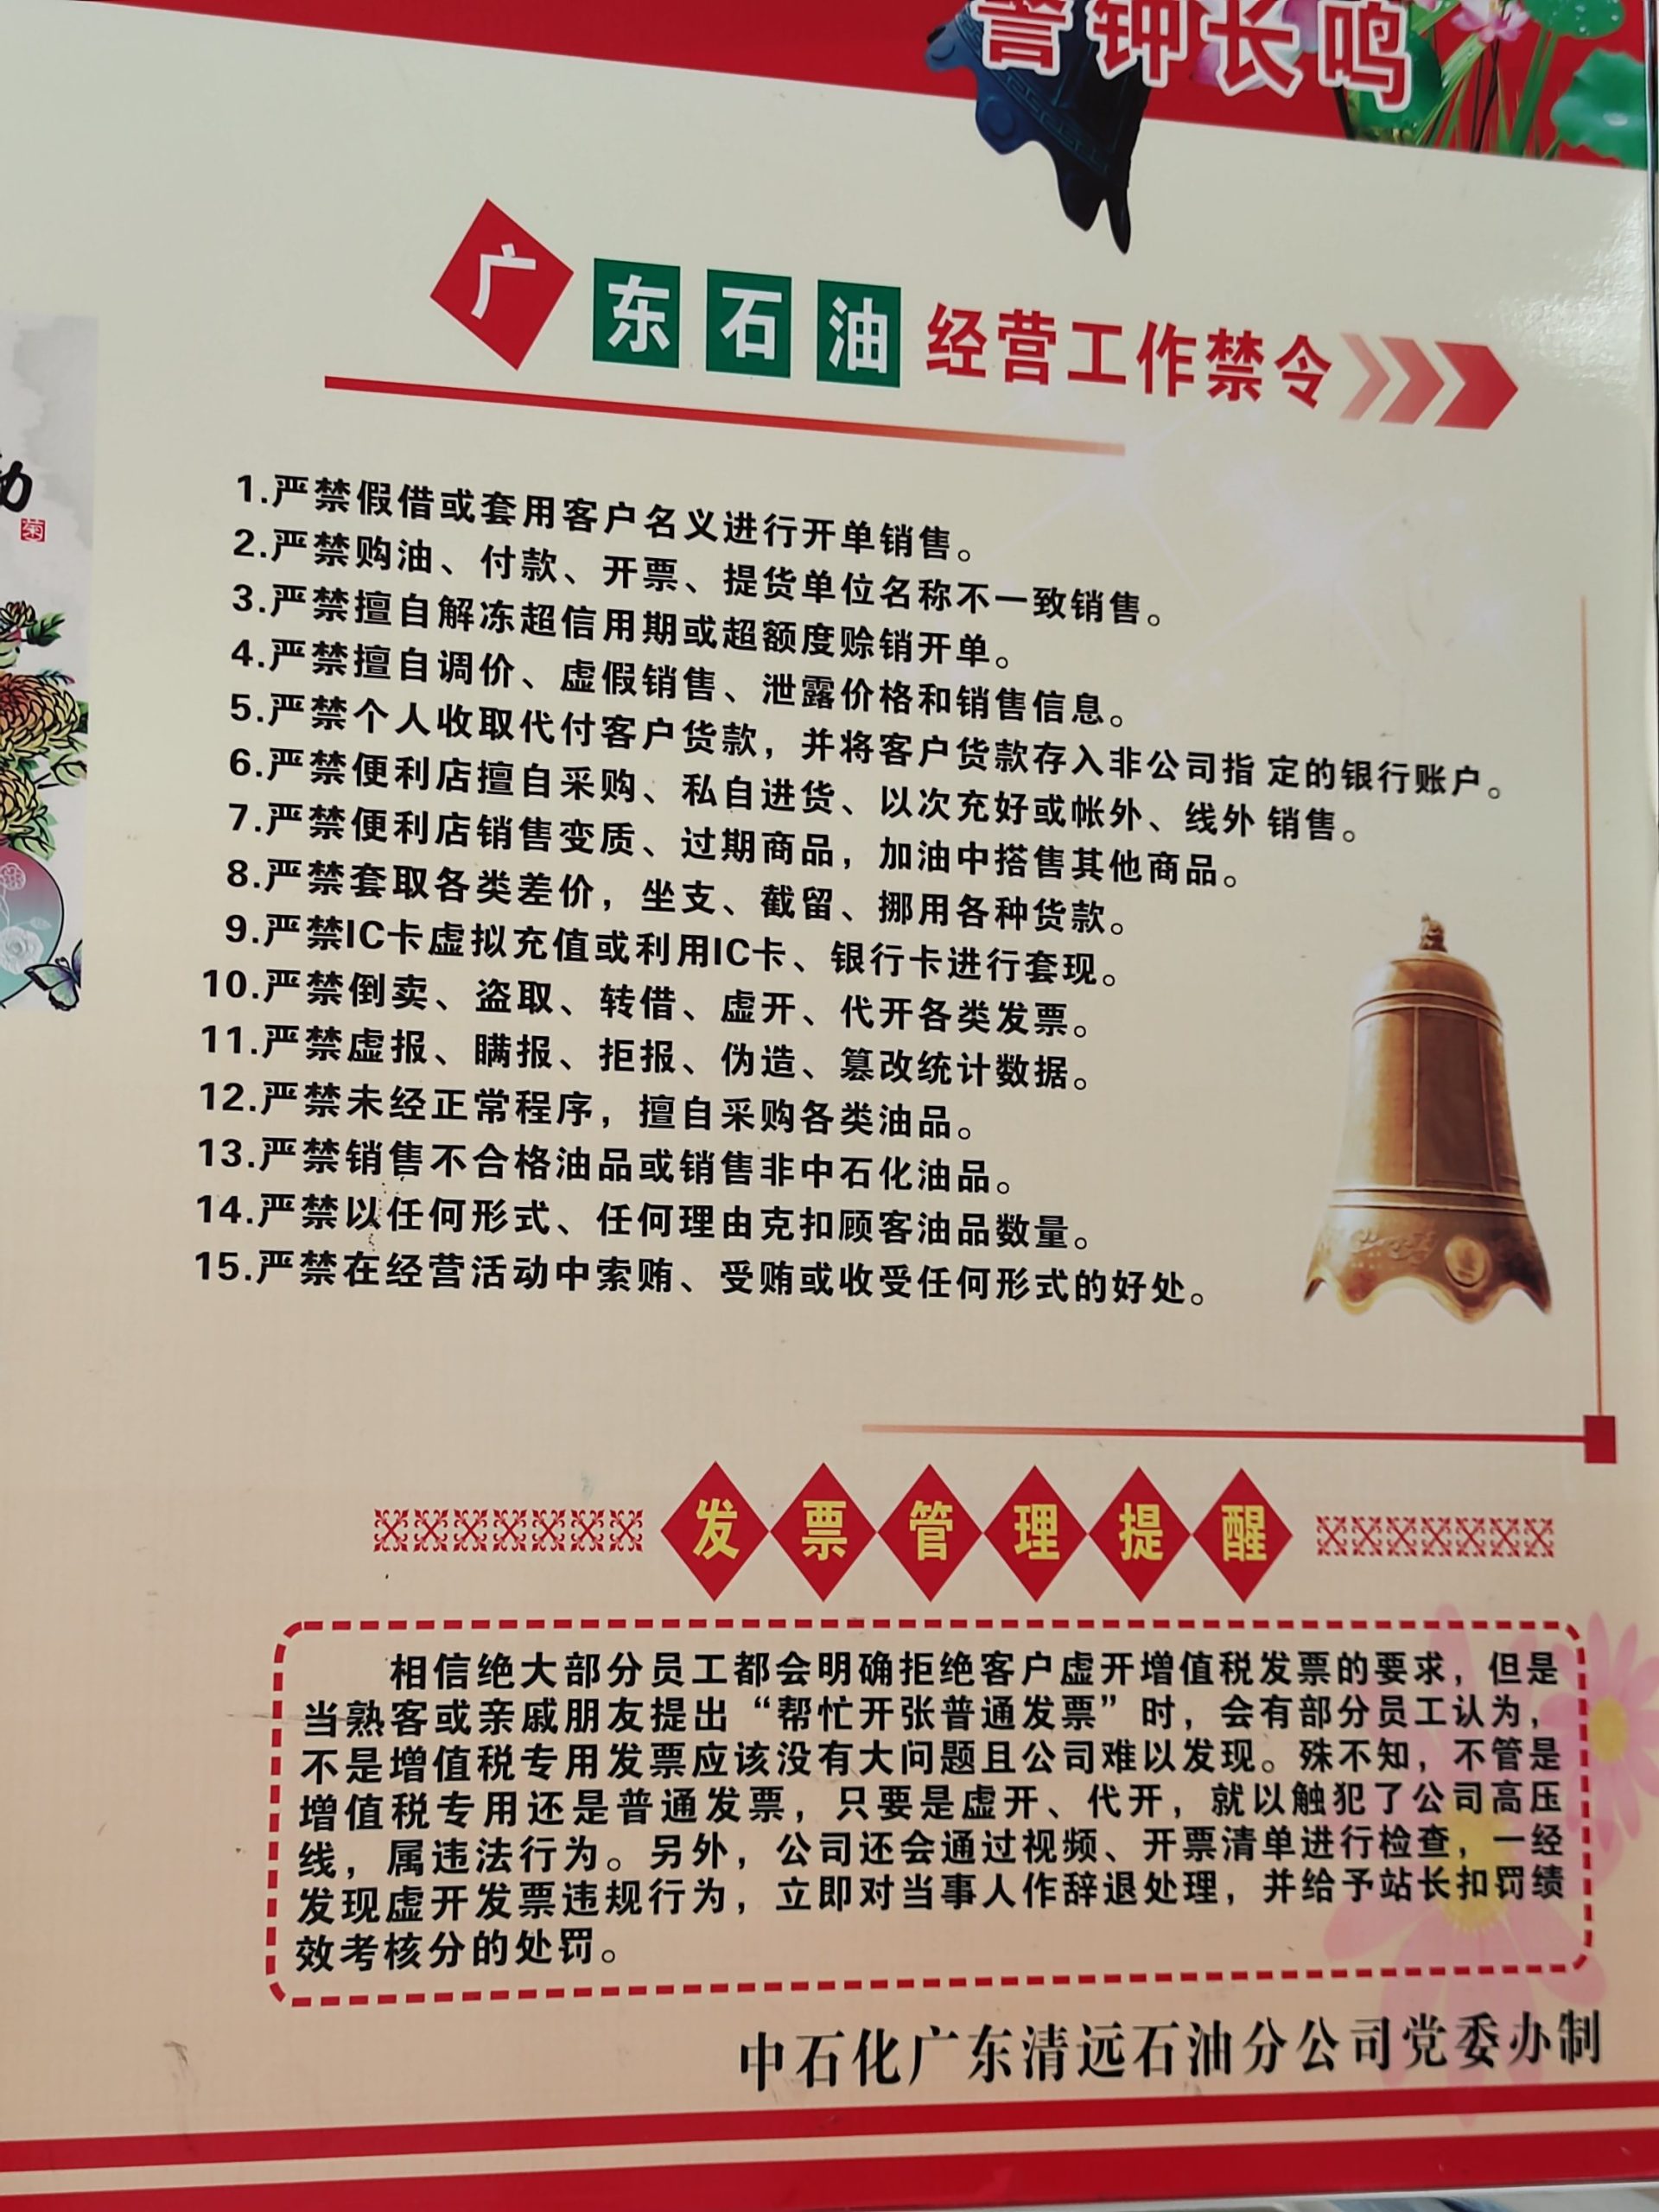 警钟长鸣
广东石油经营工作禁令
1.严禁假借或套用客户名义进行开单销售。
2.严禁购油、付款、开票、提货单位名称不一致销售。
3.严禁擅自解冻超信用期或超额度赊销开单。
4.严禁擅自调价、虚假销售、泄露价格和销售信息。
5.严禁个人收取代付客户货款，并将客户货款存入非公司指 定的银行账户。
6.严禁便利店擅自采购、私自进货、以次充好或帐外、线外 销售。
7.严禁便利店销售变质、过期商品，加油中搭售其他商品。
8.严禁套取各类差价，坐支、截留、挪用各种货款。
9.严禁IC卡虚拟充值或利用IC卡、银行卡进行套现。
10.严禁倒卖、盗取、转借、虚开、代开各类发票。
11.严禁虚报、瞒报、拒报、伪造、篡改统计数据。
12.严禁未经正常程序，擅自采购各类油品。
13.严禁销售不合格油品或销售非中石化油品。
14.严禁以任何形式、任何理由克扣顾客油品数量。
15.严禁在经营活动中索贿、受贿或收受任何形式的好处。
菊
发票管理提醒
相信绝大部分员工都会明确拒绝客户虚开增值税发票的要求，但是
当熟客或亲戚朋友提出“帮忙开张普通发票”时，会有部分员工认为，
不是增值税专用发票应该没有大问题且公司难以发现。殊不知，不管是
增值税专用还是普通发票，只要是虚开、代开，就以触犯了公司高压
线，属违法行为。另外，公司还会通过视频、开票清单进行检查，一经
发现虚开发票违规行为，立即对当事人作辞退处理，并给予站长扣罚绩
效考核分的处罚。
中石化广东清远石油分公司党委办制